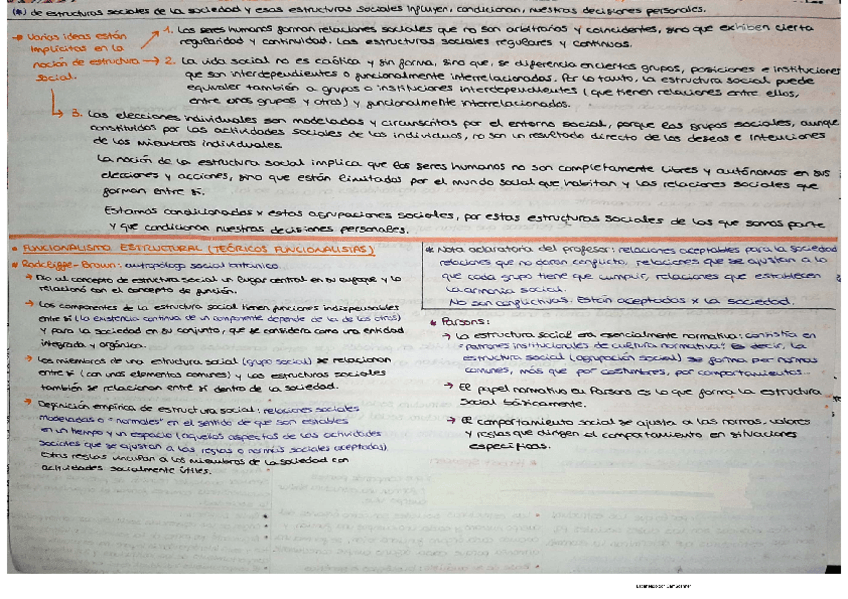 (*) de estructuras sociales de la sociedad y esas estructuras sociales influyen, condicionan, nuestras decisiones personales.
→ Varias ideas están
implícitas en la
noción de estructura
social.
1. Los seres humanos forman relaciones sociales que no son arbitrarias y coincidentes, sino que exhiben cierta
regularidad y continuidad. Las estructuras sociales regulares y continuas.
2. La vida social no es caótica y sin forma, sino que, se diferencia en ciertos grupos, posiciones e instituciones
que son interdependientes o funcionalmente interrelacionadas. Por lo tanto, la estructura social puede
equivaler también a grupos o instituciones interdependientes (que tienen relaciones entre ellos,
entre unos grupos y otros) y funcionalmente interrelacionados.
3. Las elecciones individuales son modeladas y circunscritas por el entorno social, porque los grupos sociales, aunque
constituidos por las actividades sociales de los individuos, no son un resultado directo de los deseos e intenciones
de los miembros individuales.
La noción de la estructura social implica que los seres humanos no son completamente libres y autónomos en sus
elecciones y acciones, sino que están limitados por el mundo social que habitan y las relaciones sociales que
forman entre sí.
Estamos condicionados x estas agrupaciones sociales, por estas estructuras sociales de las que somos parte
y que condicionan nuestras decisiones personales.
• FUNCIONALISMO ESTRUCTURAL (TEÓRICOS FUNCIONALISTAS)
Radcliffe-Brown: antropólogo social británico.
→ Dio al concepto de estructura social un lugar central en su enfoque y lo
relacionó con el concepto de función.
→ Los componentes de la estructura social tienen funciones indispensables
entre sí (la existencia continua de un componente depende de la de los otros)
y para la sociedad en su conjunto, que se considera como una entidad
integrada y orgánica.
→ Los miembros de una estructura social (grupo social) se relacionan
entre sí (con unos elementos comunes) y las estructuras sociales
también se relacionan entre sí dentro de la sociedad.
→ Definición empírica de estructura social: relaciones sociales
modeladas o "normales" en el sentido de que son estables
en un tiempo y un espacio (aquellos aspectos de las actividades
sociales que se ajustan a las reglas o normas sociales aceptadas)
Estas reglas vinculan a los miembros de la sociedad con
actividades socialmente útiles.
* Nota aclaratoria del profesor: relaciones aceptables para la sociedad
relaciones que no daran conflicto, relaciones que se ajustan a lo
que cada grupo tiene que cumplir, relaciones que establecen
la armonía social.
No son conflictivas. Están aceptadas x la sociedad.
Parsons:
→ La estructura social era esencialmente normativa: consistía en
"patrones institucionales de cultura normativa". Es decir, la
estructura social (agrupación social) se forma por normas
comunes, más que por costumbres, por comportamientos.
→ El papel normativo en Parsons es lo que forma la estructura
social básicamente.
→ El comportamiento social se ajusta a las normas, valores
y reglas que dirigen el comportamiento en situaciones
específicas.